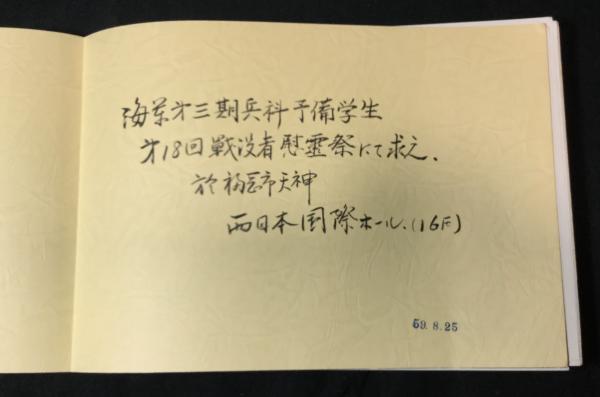 海軍才三期兵科予備学生
才18回戦没者慰霊祭にて求之.
於福岡市天神
西日本国際ホール.(16F)
59.8.25